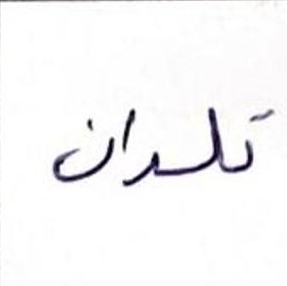 تلسدان